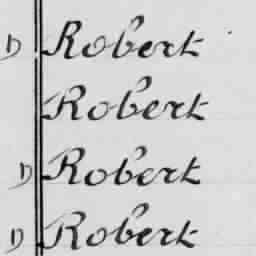 D Robert
Robert
D Robert
D Robert